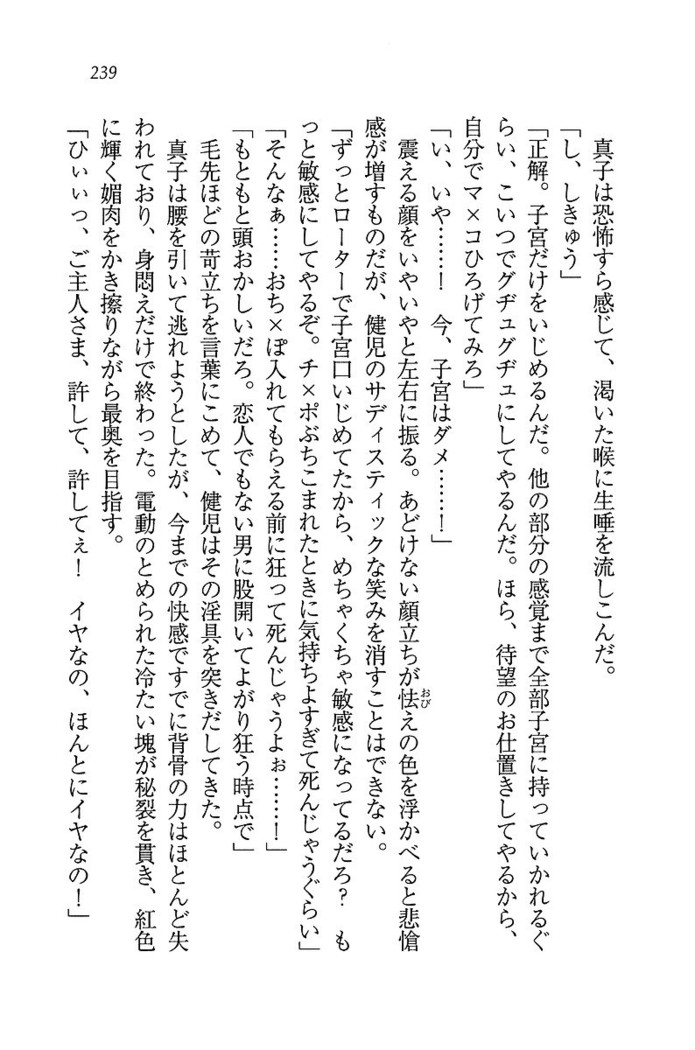 239
真子は恐怖すら感じて、渇いた喉に生唾を流しこんだ。
「し、しきゅう」
「正解。子宮だけをいじめるんだ。他の部分の感覚まで全部子宮に持っていかれるぐ
らい、こいつでグヂュグヂュにしてやるんだ。ほら、待望のお仕置きしてやるから、
自分でマ×コひろげてみろ」
「い、いや……！　今、子宮はダメ……！」
震える顔をいやいやと左右に振る。あどけない顔立ちが怯えの色を浮かべると悲愴
おび
感が増すものだが、健児のサディスティックな笑みを消すことはできない。
「ずっとローターで子宮口いじめてたから、めちゃくちゃ敏感になってるだろ？　も
っと敏感にしてやるぞ。チ×ポぶちこまれたときに気持ちよすぎて死んじゃうぐらい」
「そんなぁ……おち×ぽ入れてもらえる前に狂って死んじゃうよぉ……！」
「もともと頭おかしいだろ。恋人でもない男に股開いてよがり狂う時点で」
毛先ほどの苛立ちを言葉にこめて、健児はその淫具を突きだしてきた。
真子は腰を引いて逃れようとしたが、今までの快感ですでに背骨の力はほとんど失
われており、身悶えだけで終わった。電動のとめられた冷たい塊が秘裂を貫き、紅色
に輝く媚肉をかき擦りながら最奥を目指す。
「ひぃぃっ、ご主人さま、許して、許してぇ！　イヤなの、ほんとにイヤなの！」